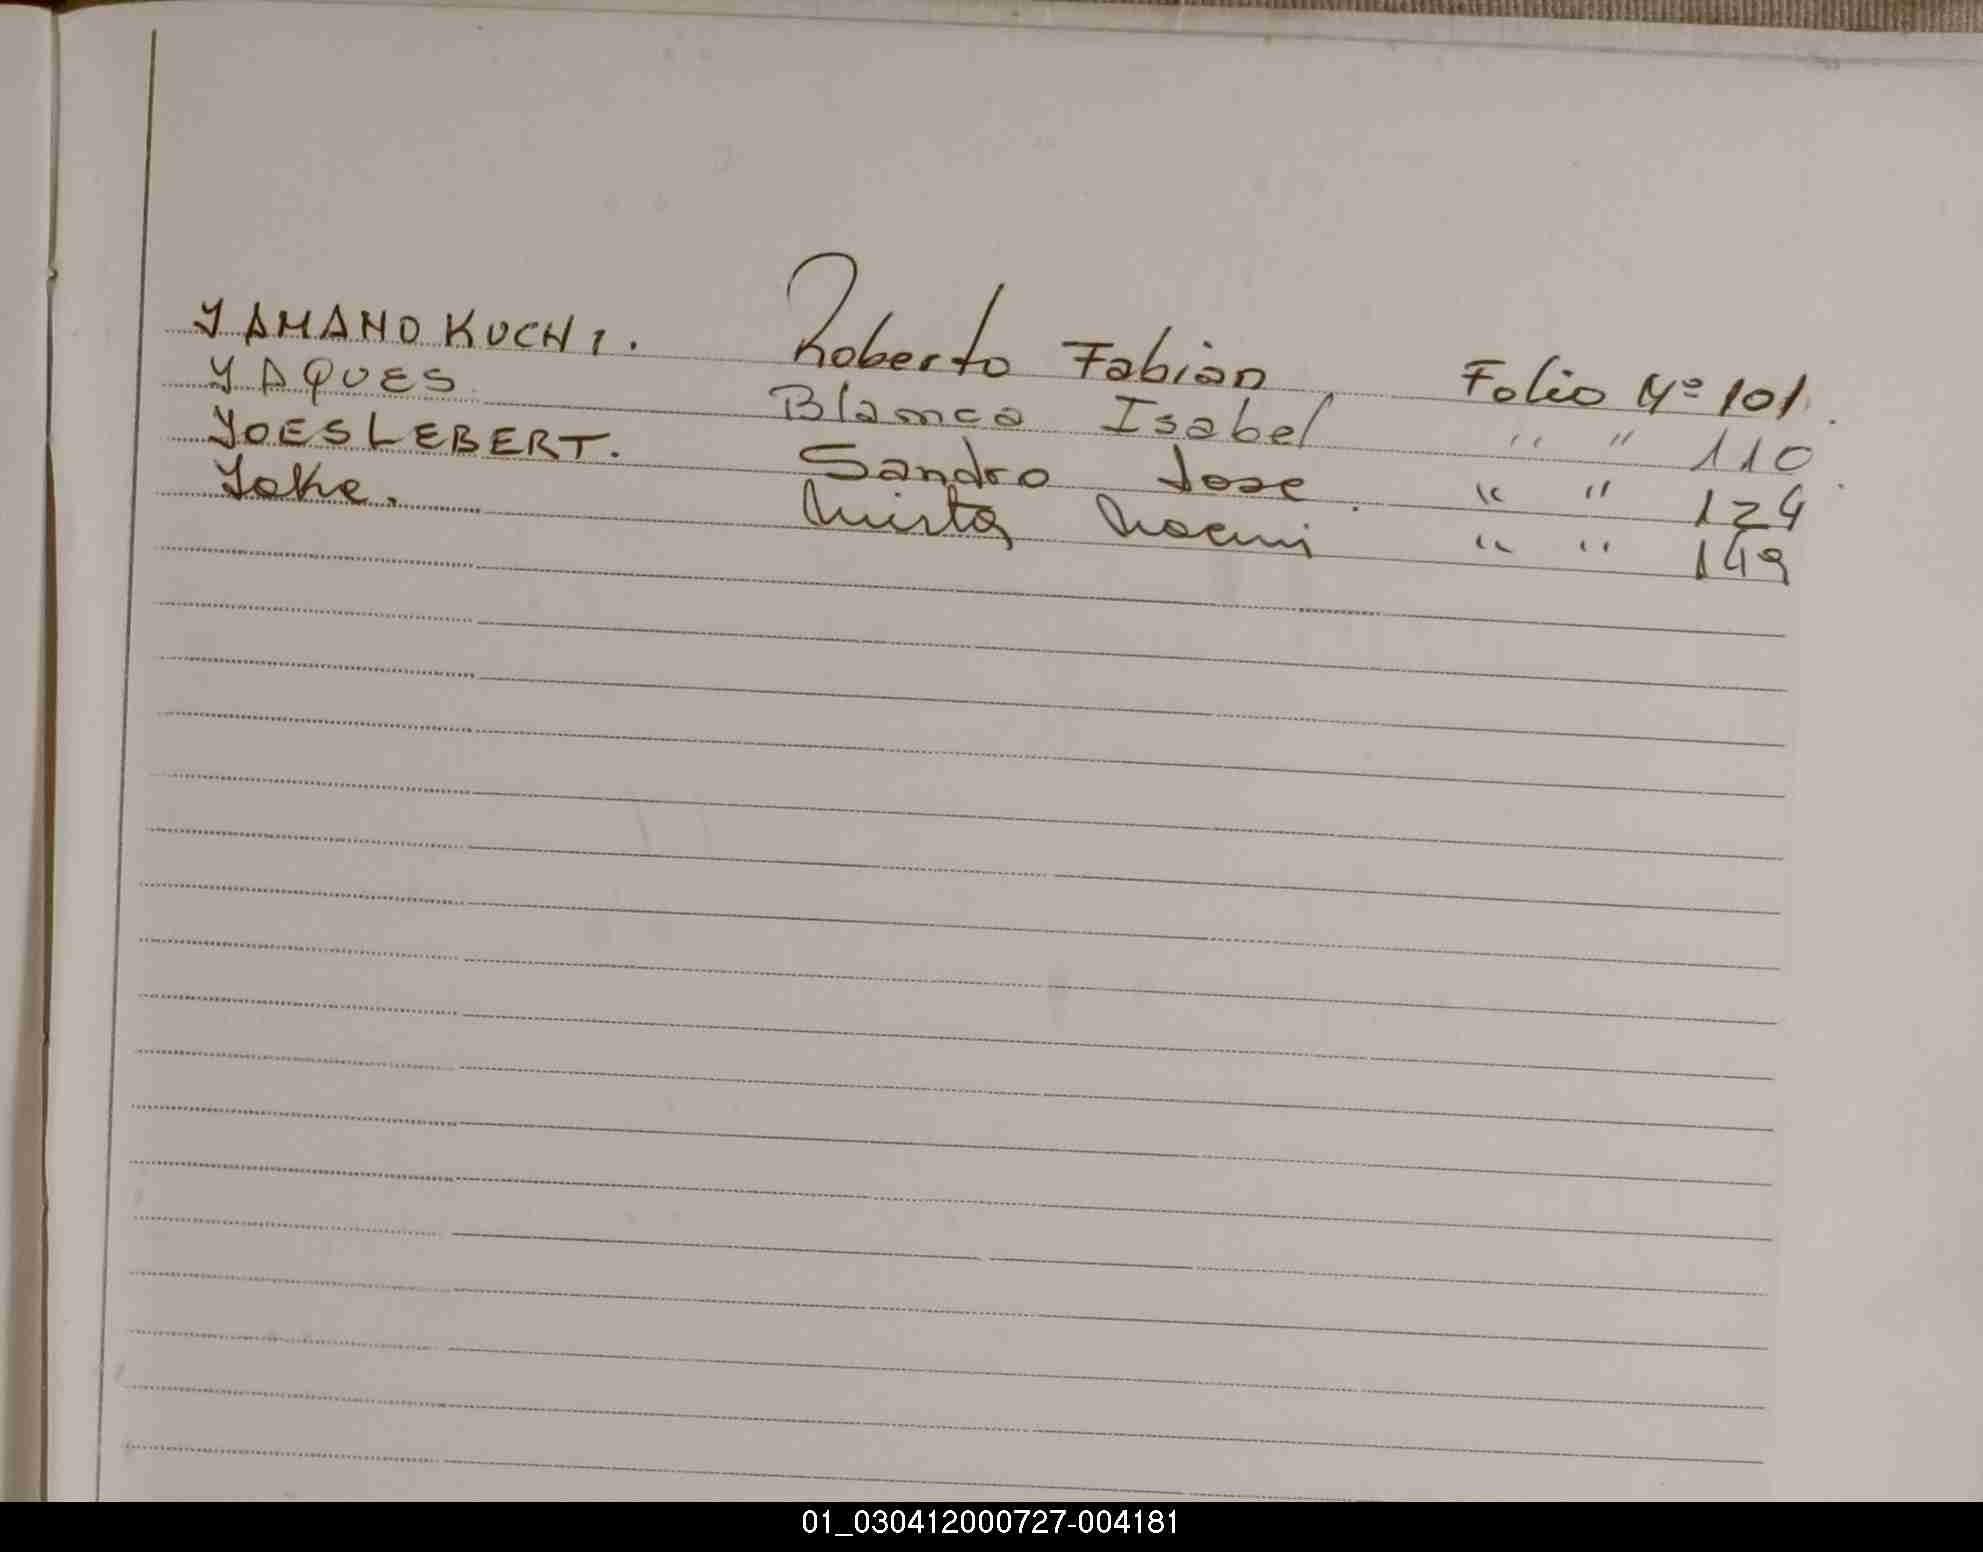 YAMANOKUCHI. Roberto Fabian Folio Nº 101.
YAQUES Blanca Isabel " " 110
YOESLEBERT. Sandro Jose. " " 124
Yoke. Mirta Noemi " " 149
01_030412000727-004181